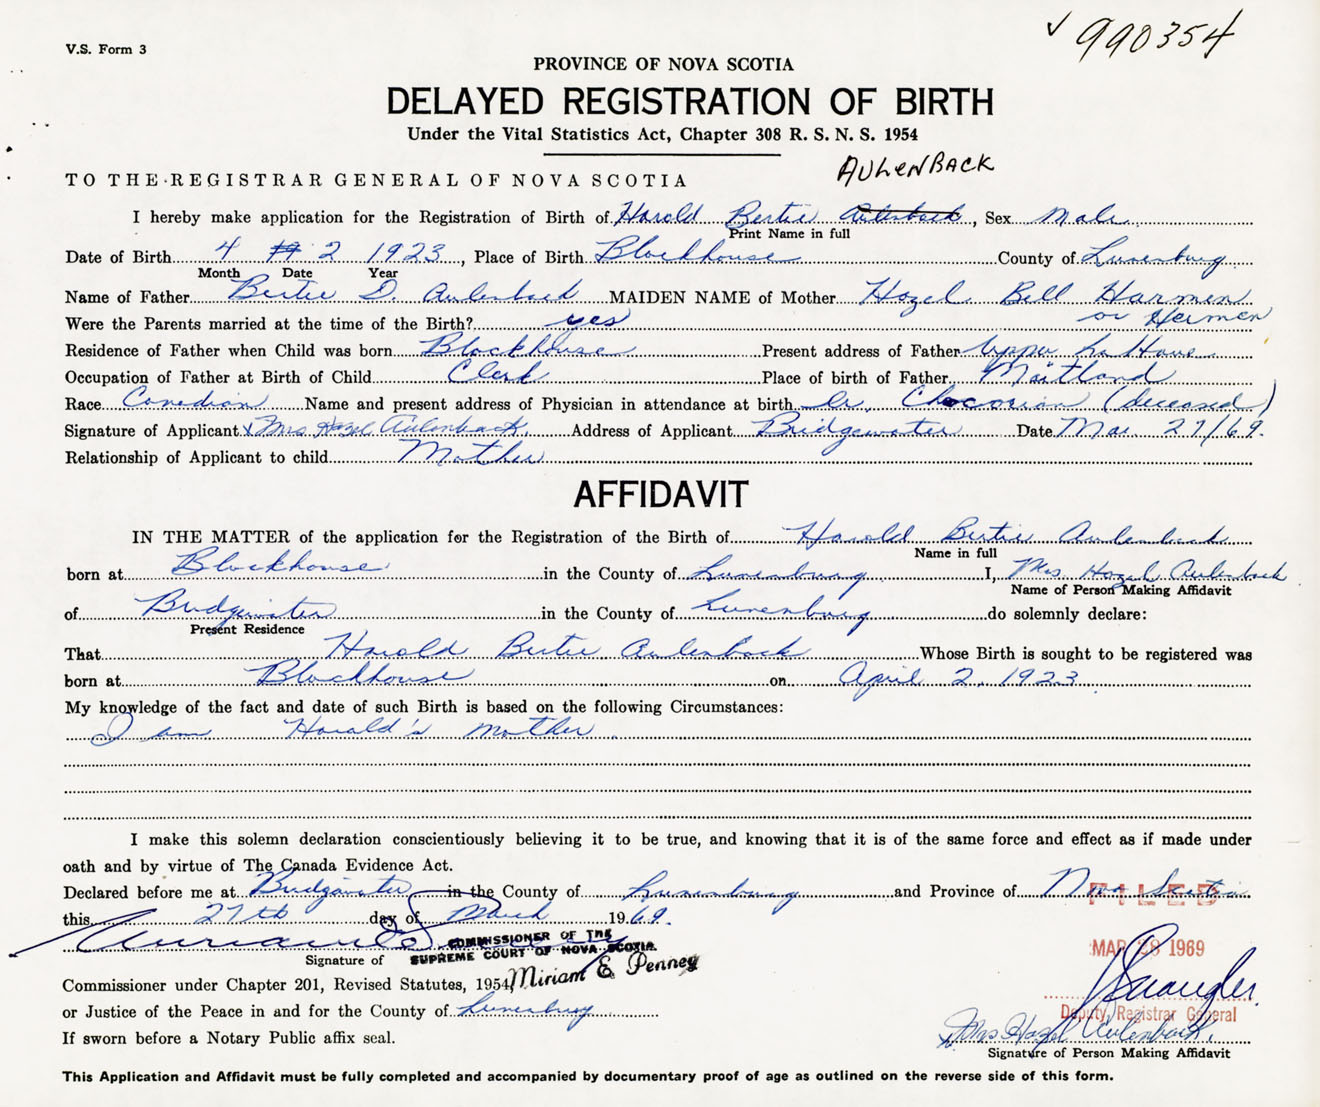 V.S. Form 3
✓ 990354
PROVINCE OF NOVA SCOTIA
DELAYED REGISTRATION OF BIRTH
Under the Vital Statistics Act, Chapter 308 R. S. N. S. 1954
AULENBACK
TO THE REGISTRAR GENERAL OF NOVA SCOTIA
I hereby make application for the Registration of Birth of Harold Bertie Aulenback, Sex Male
Print Name in full
Date of Birth 4 2 1923, Place of Birth Blockhouse County of Lunenburg
Month Date Year
Name of Father Bertie D. Aulenback MAIDEN NAME of Mother Hazel Bell Harmen
or Hermen
Were the Parents married at the time of the Birth? yes
Residence of Father when Child was born Blockhouse Present address of Father Upper La Have
Occupation of Father at Birth of Child Clerk Place of birth of Father Maitland
Race Canadian Name and present address of Physician in attendance at birth Dr. (deceased)
Signature of Applicant x Mrs Hazel Aulenback Address of Applicant Bridgewater Date Mar 27/69.
Relationship of Applicant to child Mother
AFFIDAVIT
IN THE MATTER of the application for the Registration of the Birth of Harold Bertie Aulenback
Name in full
born at Blockhouse in the County of Lunenburg I, Mrs Hazel Aulenback
Name of Person Making Affidavit
of Bridgewater in the County of Lunenburg do solemnly declare:
Present Residence
That Harold Bertie Aulenback Whose Birth is sought to be registered was
born at Blockhouse on April 2, 1923
My knowledge of the fact and date of such Birth is based on the following Circumstances:
I am Harold's mother.
I make this solemn declaration conscientiously believing it to be true, and knowing that it is of the same force and effect as if made under
oath and by virtue of The Canada Evidence Act.
Declared before me at Bridgewater in the County of Lunenburg and Province of Nova Scotia
FILED
this 27th day of March 1969.
COMMISSIONER OF THE
SUPREME COURT OF NOVA SCOTIA
MAR 28 1969
Signature of
Miriam E. Penney
Commissioner under Chapter 201, Revised Statutes, 1954,
or Justice of the Peace in and for the County of Lunenburg
Deputy Registrar General
x Mrs Hazel Aulenback.
If sworn before a Notary Public affix seal.
Signature of Person Making Affidavit
This Application and Affidavit must be fully completed and accompanied by documentary proof of age as outlined on the reverse side of this form.